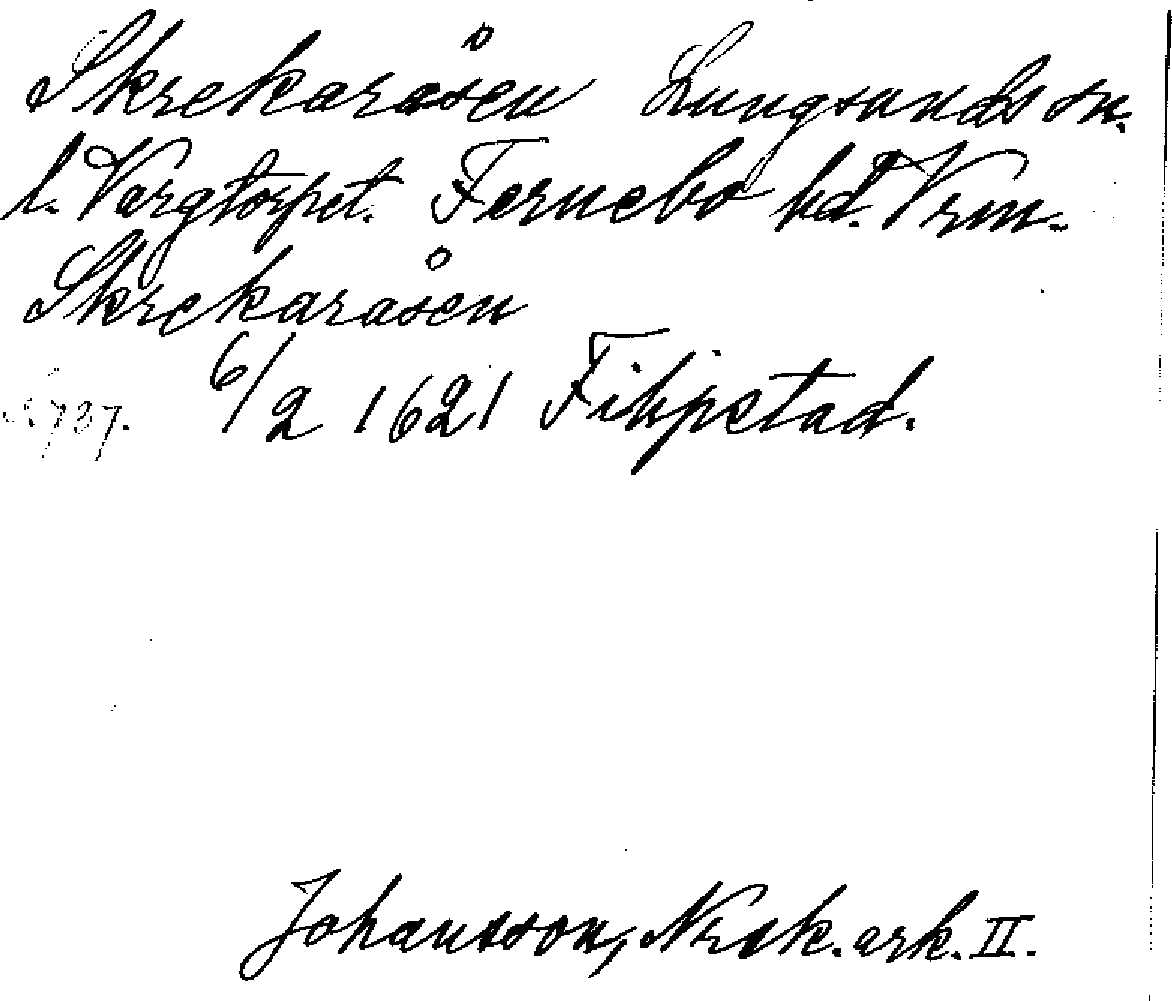 Skrekaråsen Lungsunds sn.
l. Vargtorpet. Fernebo hd. Vrm.
Skrekaråsen
6/2 1621 Filipstad.
737.
Johansson, Nrsk. ark. II.